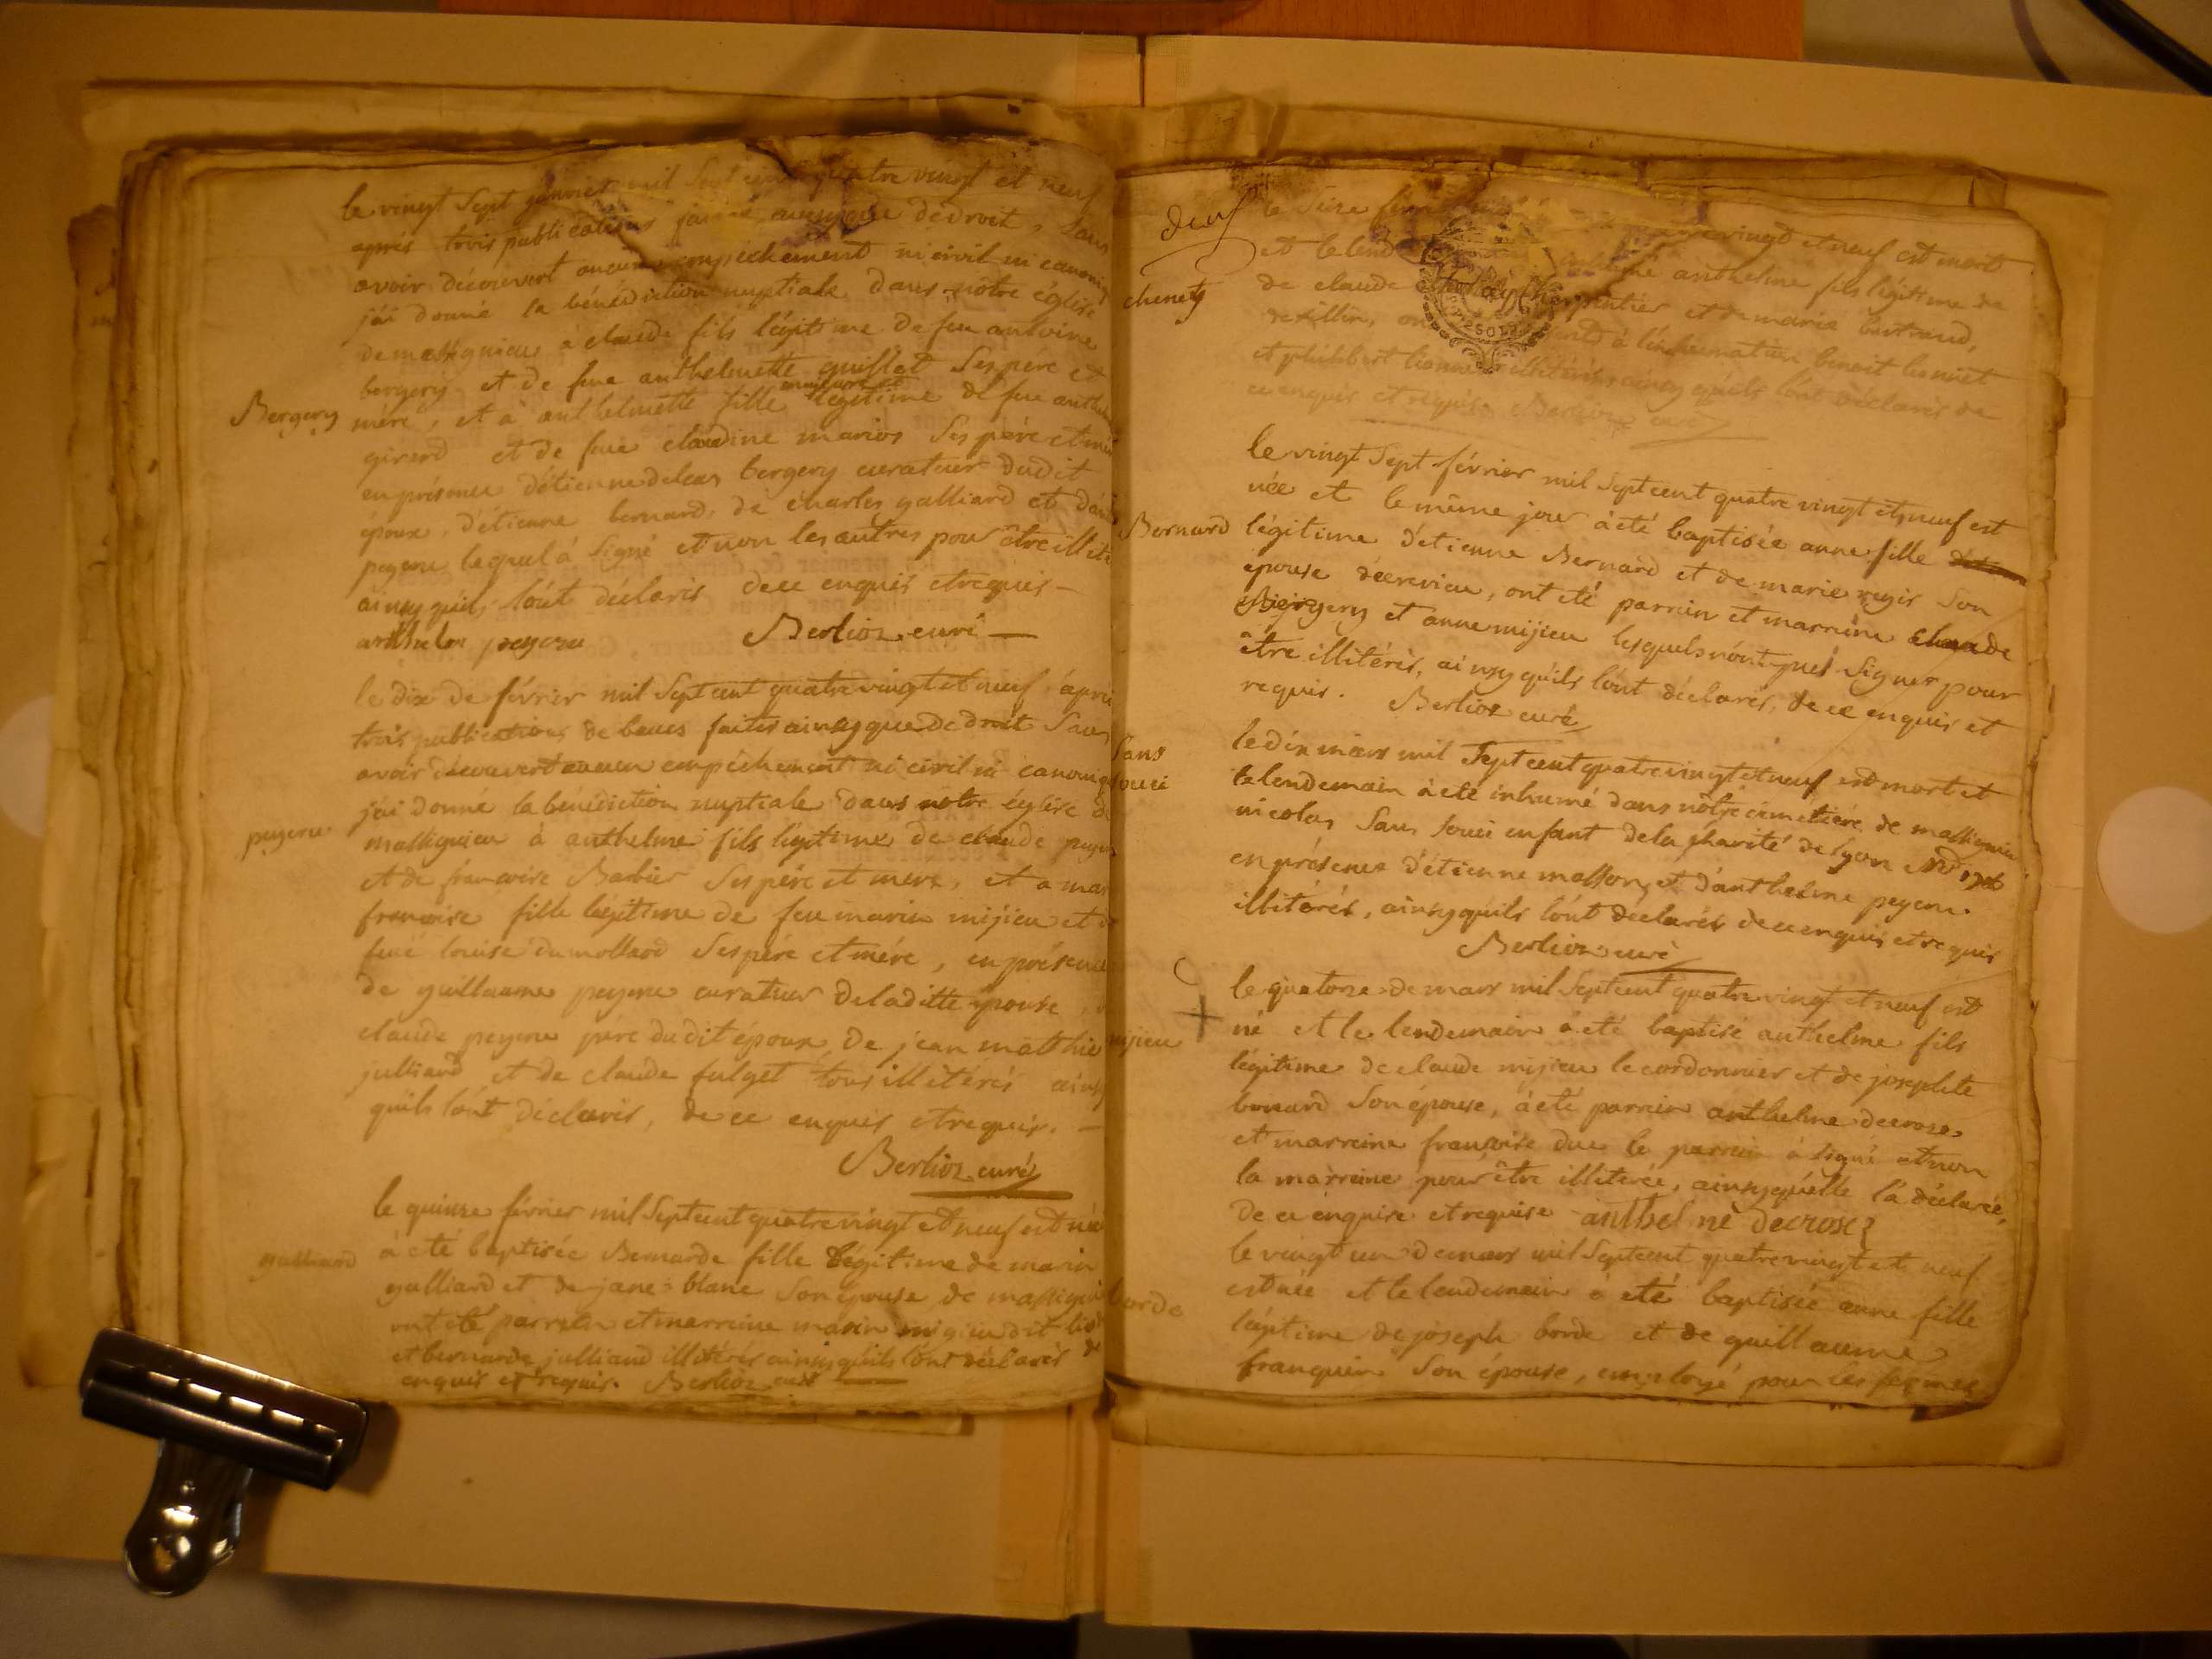 le vingt Sept janvier mil Sept cent quatre vingt et neuf
après trois publications faites ainsy que de droit, Sans
avoir découvert aucun empéchement ni civil ni canoniq
jái donné la bénédiction nuptiale dans nôtre église
de massignieu à claude fils légitime de feu antoine
bergery et de feue anthelmette guillet Ses pére et
Bergery
mére, et à anthelmette fille majeure et légitime de feu anthel
girerd et de feue claudine marion Ses pére et mér
en présence détienne bergery curateur dudit
époux, détienne bernard, de charles galliard et
peyene lequel á Signé et non les autres pour être illité
ainsy quils lónt déclarés de ce enquis et requis
anthelme peyene Berlioz curé
le dix de février mil Sept cent quatre vingt et neuf, aprés
trois publications de bancs faites ainsy que de droit Sans
avoir découvert aucun empéchement ni civil ni canoniq
jái donné la bénédiction nuptiale dans notre église de
peyene
massignieu à anthelme fils légitime de claude peyene
et de françoise Barbier Ses pére et mere, et a mar
francoise fille légitime de feu marin mijieu et de
feuë louise dumollard Ses pére et mére, en présence
de guillaume peyene curateur de laditte épouse,
claude peyene pére dudit époux, de jean matthie
julliard et de claude fulget tous illitérés ainsy
quils lónt déclarés, de ce enquis et requis.
Berlioz curé
le quinze février mil Sept cent quatre vingt et neuf est née
galliard
à eté baptisée Bernarde fille légitime de marin
galliard et de jane blanc Son épouse de massignie
ont été parrain et marreine marin mijieu dit
et bernarde julliand illitérés ainsy quils lont déclarés de
enquis et requis. Berlioz curé
deuf
le Seize vingt et neuf est mort
et le lend anthelme fils légitime de
chenety
de claude charpentier et de marie bertrand,
à línhumation benoit bonnet
et philibert bonnet illitérés ainsy quils lónt déclarés de
ce enquis et requis Berlioz curé
le vingt Sept février mil Sept cent quatre vingt et neuf est
née et le même jour à été baptisée anne fille
Bernard
légitime détienne Bernard et de marie Son
épouse, ont eté parrain et marreine claude
Bergery et anne mijieu lesquels nónt Signer pour
être illitérés, ainsy quils lónt déclarés, de ce enquis et
requis. Berlioz curé
sans
souci
le dix mars mil Sept cent quatre vingt et neuf est mort et
le lendemain à eté inhumé dans nôtre cimetiére de massignieu
nicolas Sans Souci enfant de la charité de lyon
en présence détienne masson, et dánthelme peyene
illitérés, ainsy quils lónt déclarés de ce enquis et requis
Berlioz curé
le quatorze de mars mil Sept cent quatre vingt et neuf est
mijieu
né et le lendemain à eté baptisé anthelme fils
légitime de claude mijieu le cordonnier et de josephte
bonard Son épouse, à eté parrain anthelme decroze
et marreine françoise duc le parrain à Signé et non
la marreine pour être illiterée, ainsy quélle lá déclarée,
de ce enquise et requise anthel me decroze
le vingt un de mars mil Sept cent quatre vingt et neuf
est née et le lendemain à eté baptisée anne fille
borde
légitime de joseph borde et de guillaume
franquin Son épouse, employé pour les fermes